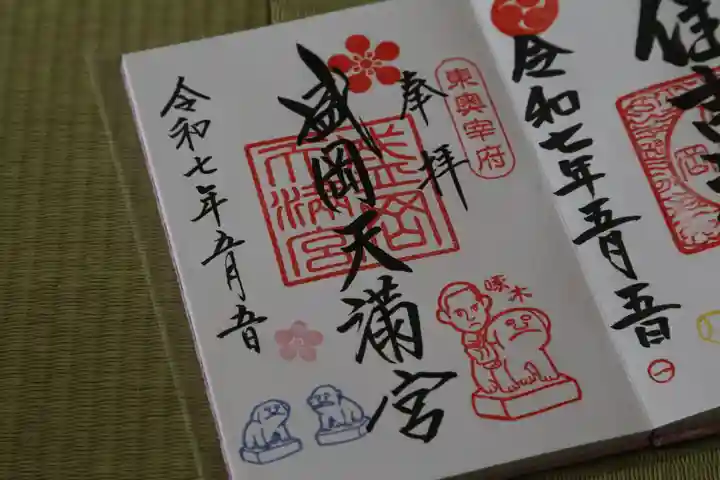 令和七年五月五日
東奥宰府
奉拝
盛岡天満宮
盛岡天満宮
啄木
令和七年五月五日